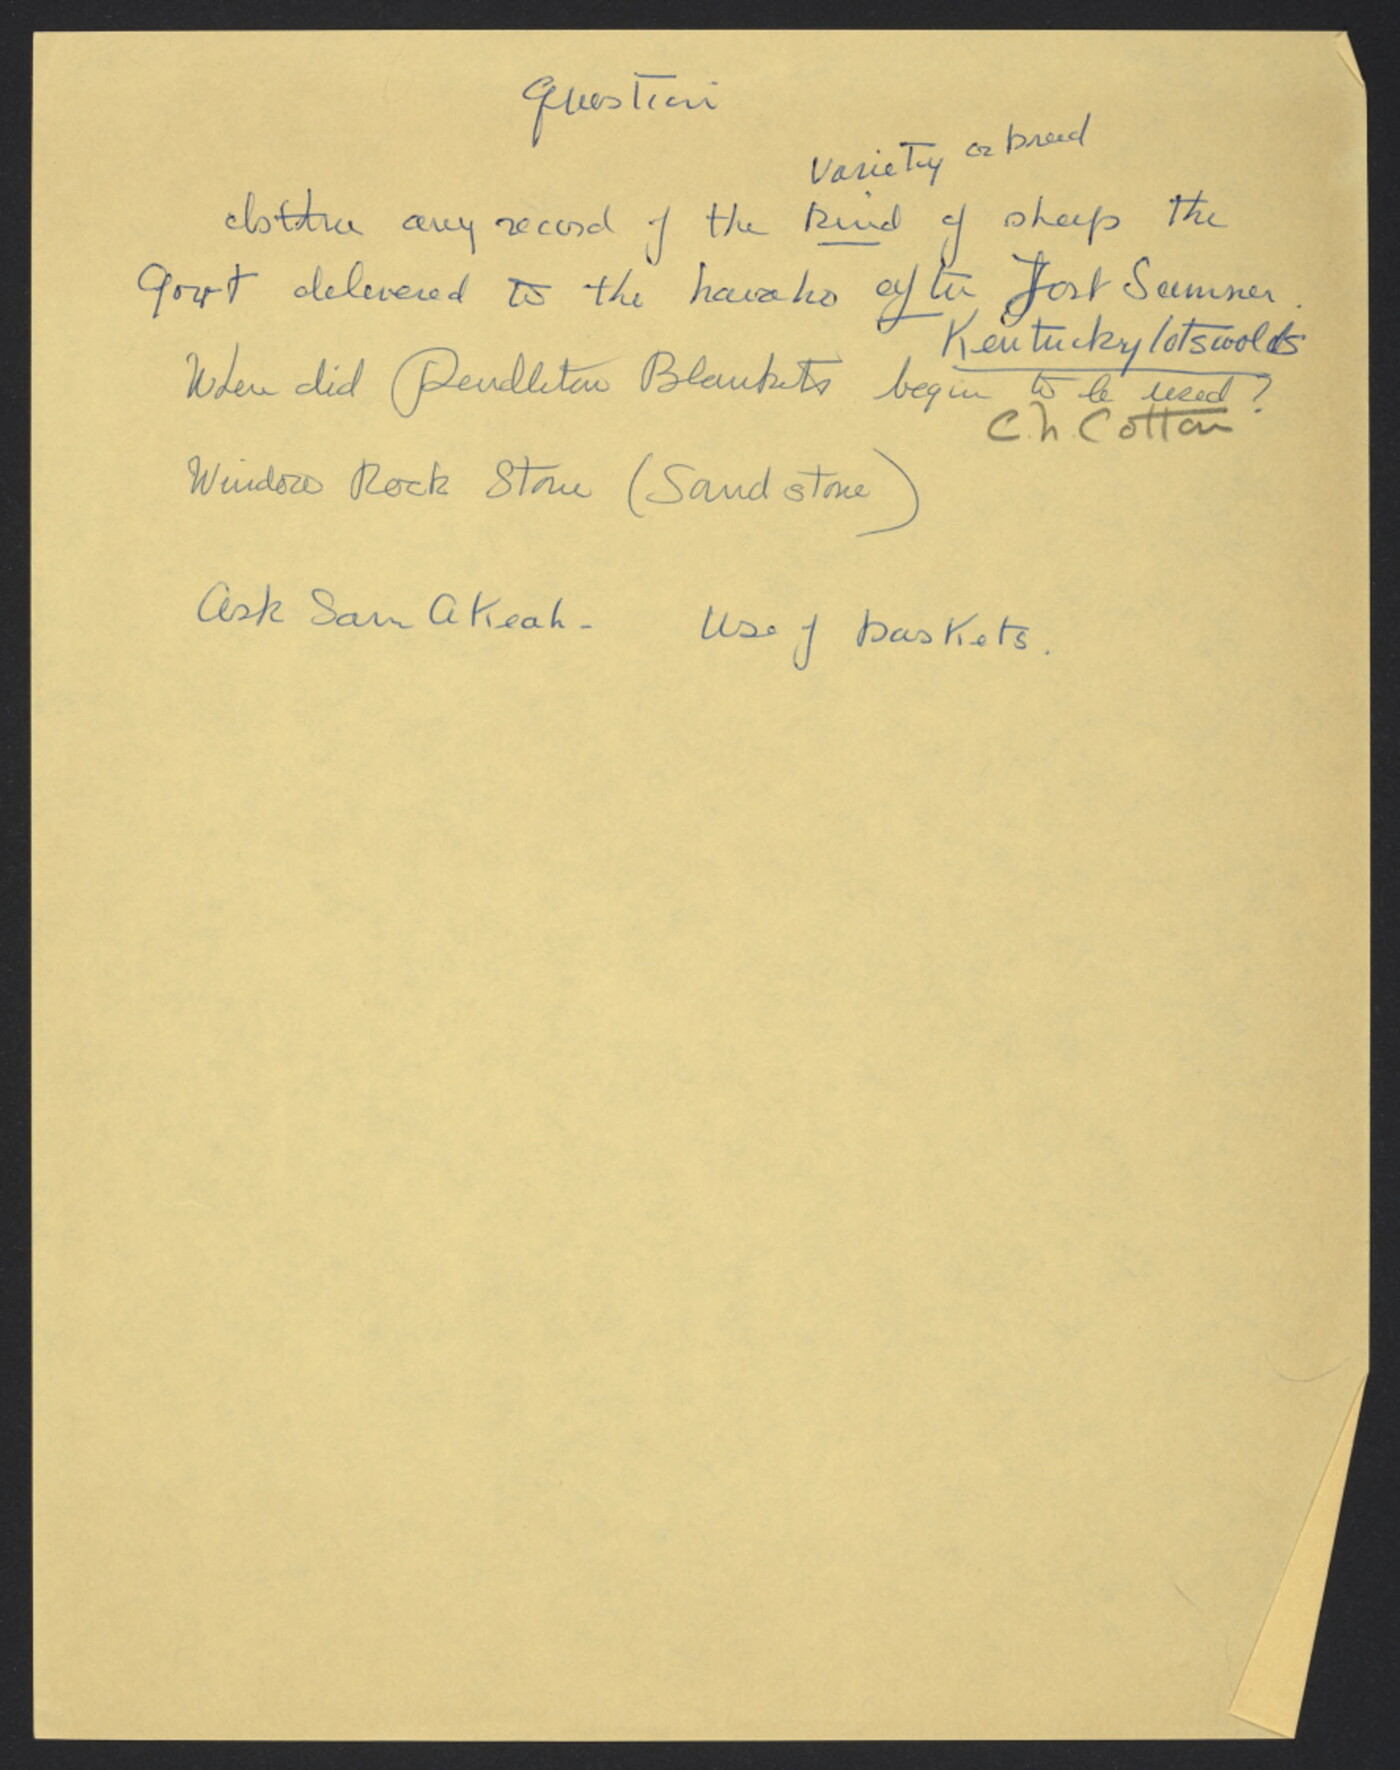 Question
Variety or breed
Is there any record of the kind of sheep the
Gov't delivered to the navaho after Fort Sumner.
Kentucky Cotswolds
When did Pendleton Blankets begin to be used?
C.N. Cotton
Window Rock Stone (Sandstone)
Ask Sam Akeah - Use of baskets.